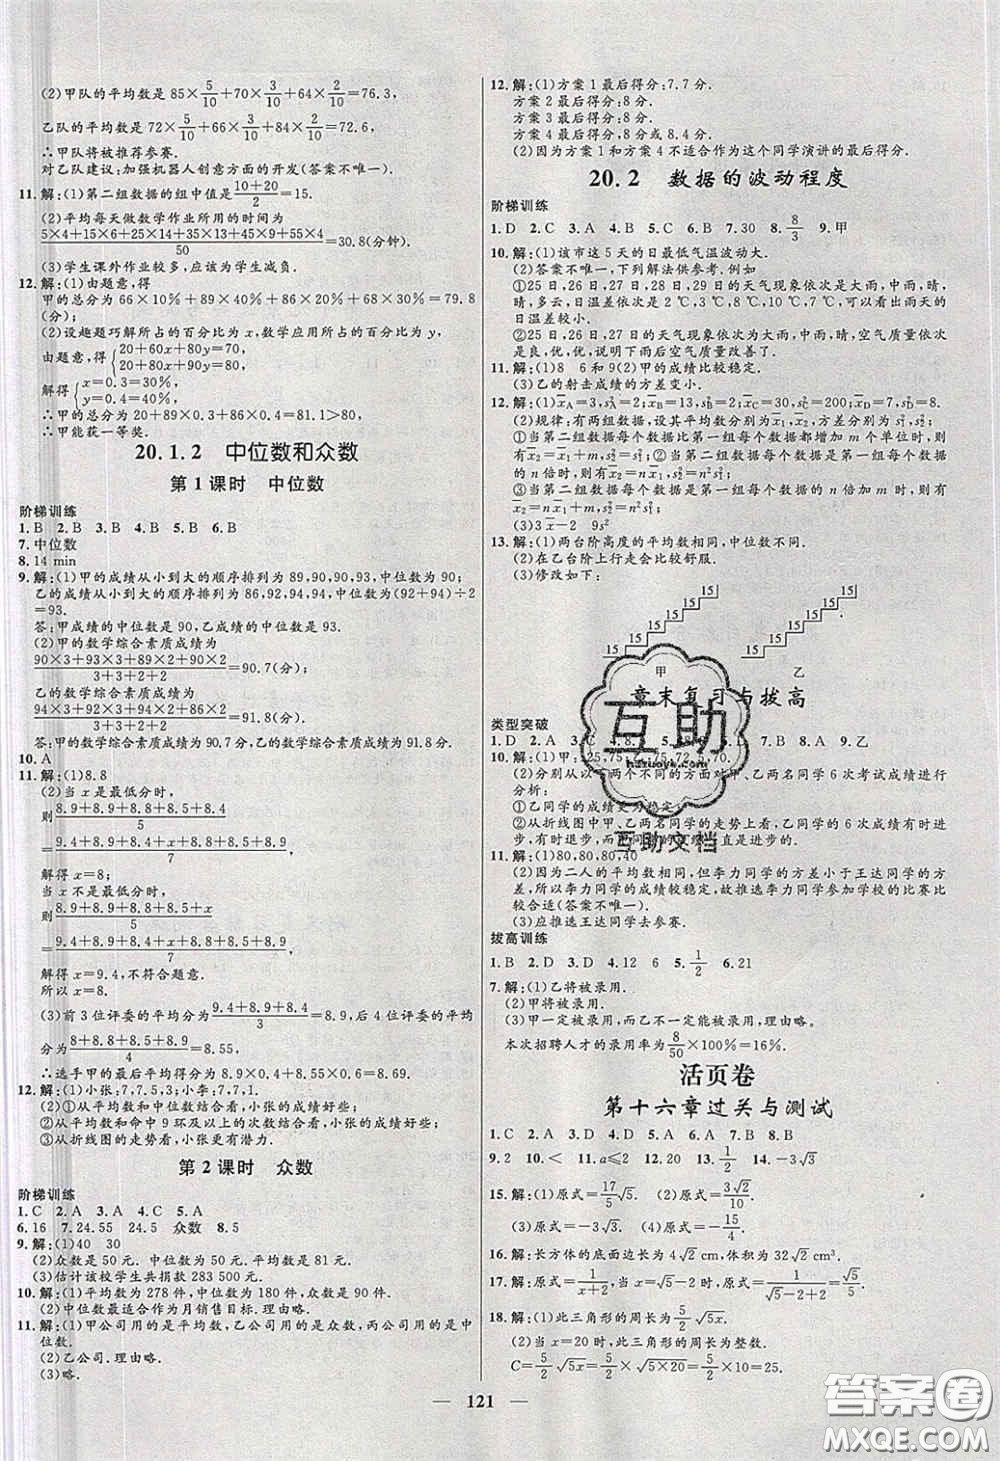 (2)甲队的平均数是 85×5/10+70×3/10+64×2/10=76.3,
乙队的平均数是 72×5/10+66×3/10+84×2/10=72.6,
∴甲队将被推荐参赛.
对乙队建议:加强机器人创意方面的开发(答案不唯一).
11.解:(1)第二组数据的组中值是(10+20)/2=15.
(2)平均每天做数学作业所用的时间为
(5×4+15×6+25×14+35×13+45×9+55×4)/50=30.8(分钟)
(3)学生课外作业较多,应该为学生减负.
12.解:(1)由题意,得
甲的总分为 66×10%+89×40%+86×20%+68×30%=79.8
(分);
(2)设趣题巧解所占的百分比为 x,数学应用所占的百分比为 y,
由题意,得{20+60x+80y=70, 20+80x+90y=80,
解得{x=0.3=30%, y=0.4=40%.
∴甲的总分为 20+89×0.3+86×0.4=81.1>80,
∴甲能获一等奖.
20.1.2 中位数和众数
第 1 课时 中位数
阶梯训练
1.B 2.B 3.B 4.B 5.B 6.B
7.中位数
8.14 min
9.解:(1)甲的成绩从小到大的顺序排列为 89,90,90,93,中位数为 90;
乙的成绩从小到大的顺序排列为 86,92,94,94,中位数为(92+94)÷2
=93.
答:甲成绩的中位数是 90,乙成绩的中位数是 93.
(2)甲的数学综合素质成绩为
(90×3+93×3+89×2+90×2)/(3+3+2+2)=90.7(分),
乙的数学综合素质成绩为
(94×3+92×3+94×2+86×2)/(3+3+2+2)=91.8(分),
答:甲的数学综合素质成绩为 90.7 分,乙的数学综合素质成绩为 91.8 分.
10.A
11.解:(1)8.8
(2)当 x 是最低分时,
则(8.9+8.9+8.8+8.5+8.4)/5
=(9.4+8.9+x+8.9+8.8+8.5+8.4)/7
解得 x=8;
当 x 不是最低分时,
则(8.9+8.9+8.8+8.5+x)/5
=(9.4+8.9+x+8.9+8.8+8.5+8.4)/7
解得 x=9.4,不符合题意.
所以 x=8.
(3)前 3 位评委的平均分为(9.4+8.9+8.4)/3=8.9,后 4 位评委的平均
分为(8+8.8+8.9+8.5)/4=8.55,
∴选手甲的最后平均得分为 8.9×0.4+8.55×0.6=8.69
12.解:(1)小张:7,7.5,3,小李:7,7,1.
(2)①从平均数和中位数结合看,小张的成绩好些;
②从平均数和命中 9 环及以上的次数结合看,小张的成绩好些;
③从折线图的走势看,小张更有潜力.
第 2 课时 众数
阶梯训练
1.C 2.A 3.A 4.C 5.A
6.16 7.24.55 24.5 众数 8.5
9.解:(1)40 30
(2)众数是 50 元,中位数为 50 元,平均数是 81 元.
(3)估计该校学生共捐款 283 500 元.
10.解:(1)平均数为 278 件,中位数为 180 件,众数是 90 件.
(2)中位数最适合作为月销售目标.理由略.
11.解:(1)甲公司用的是平均数,乙公司用的是众数,丙公司用的是中
位数.
(2)乙公司.理由略.
(3)略.
12.解:(1)方案 1 最后得分:7.7 分.
方案 2 最后得分:8 分.
方案 3 最后得分:8 分.
方案 4 最后得分:8 分或 8.4 分.
(2)因为方案 1 和方案 4 不适合作为这个同学演讲的最后得分.
20.2 数据的波动程度
阶梯训练
1.D 2.C 3.A 4.B 5.C 6.B 7.30 8.8/3 9.甲
10.解:(1)该市这 5 天的日最低气温波动大.
(2)答案不唯一,下列解法供参考.例如
①25 日,26 日,27 日,28 日,29 日的天气现象依次是大雨,中雨,晴,
晴,多云,日温差依次是 2 ℃,3 ℃,8 ℃,10 ℃,7 ℃,可以看出雨天的
日温差较小.
②25 日,26 日,27 日的天气现象依次为大雨,中雨,晴,空气质量依次
是良,优,优,说明下雨后空气质量改善了.
11.解:(1)8 6 和 9(2)甲的成绩比较稳定.
(3)乙的射击成绩的方差变小.
(2)规律:有两组数据,设其平均数分别为x̄₁,x̄₂,方差分别为s₁²,s₂².
①当第二组数据每个数据比第一组每个数据都增加 m 个单位时,则有
x̄₂=x̄₁+m,s₂²=s₁²;
②当第二组数据每个数据是第一组每个数据的 n 倍时,则有
x̄₂=nx̄₁,s₂²=n²s₁²;
③当第二组数据每个数据是第一组每个数据的 n 倍加 m 时,则有
x̄₂=nx̄₁+m,s₂²=n²s₁².
(3)3x̄-2 9s²
13.解:(1)两台阶高度的平均数相同,中位数不同.
(2)在乙台阶上行走会比较舒服.
(3)修改如下:
15 15 15 15 15 15
15 15 15 15 15 15
甲 乙
章末复习与拔高
类型突破
(2)分别从以下两个不同的方面对甲、乙两名同学 6 次考试成绩进行
分析:
①乙同学的成绩更为稳定;
②从折线图中甲、乙两名同学的走势上看,乙同学的 6 次成绩有时进
11.解:(1)80,80,80,40
(2)因为二人的平均数相同,但李力同学的方差小于王达同学的方
差,所以李力同学的成绩较稳定,故推选李力同学参加学校的比赛比
较合适(答案不唯一).
(3)应推选王达同学去参赛.
拔高训练
1.B 2.D 3.D 4.12 6 5.1/2 6.21
7.解:(1)乙将被录用.
(2)甲将被录用.
(3)甲一定被录用,而乙不一定能被录用,理由略.
本次招聘人才的录用率为8/50×100%=16%.
活页卷
第十六章过关与测试
1.C 2.A 3.D 4.C 5.A 6.B 7.A 8.B
9.2 10.< 11.a≤2 12.20 13.1/2 14.-3√3
15.解:(1)原式=17/5√5. (2)原式=3√2/10.
(3)原式=-3√3. (4)原式=-√15/4.
16.解:长方体的底面边长为 4√2 cm,体积为 32√3 cm³.
17.解:原式=1/(x+2),当 x=√5-2时,原式=1/(√5-2+2)=√5/5.
18.解:(1)此三角形的周长为5/2√5x.
(2)当 x=20 时,此三角形的周长为整数.
C=5/2√5x=5/2×√5×20=5/2×10=25.
121
互助
互助文档
答案圈
MXQE.COM